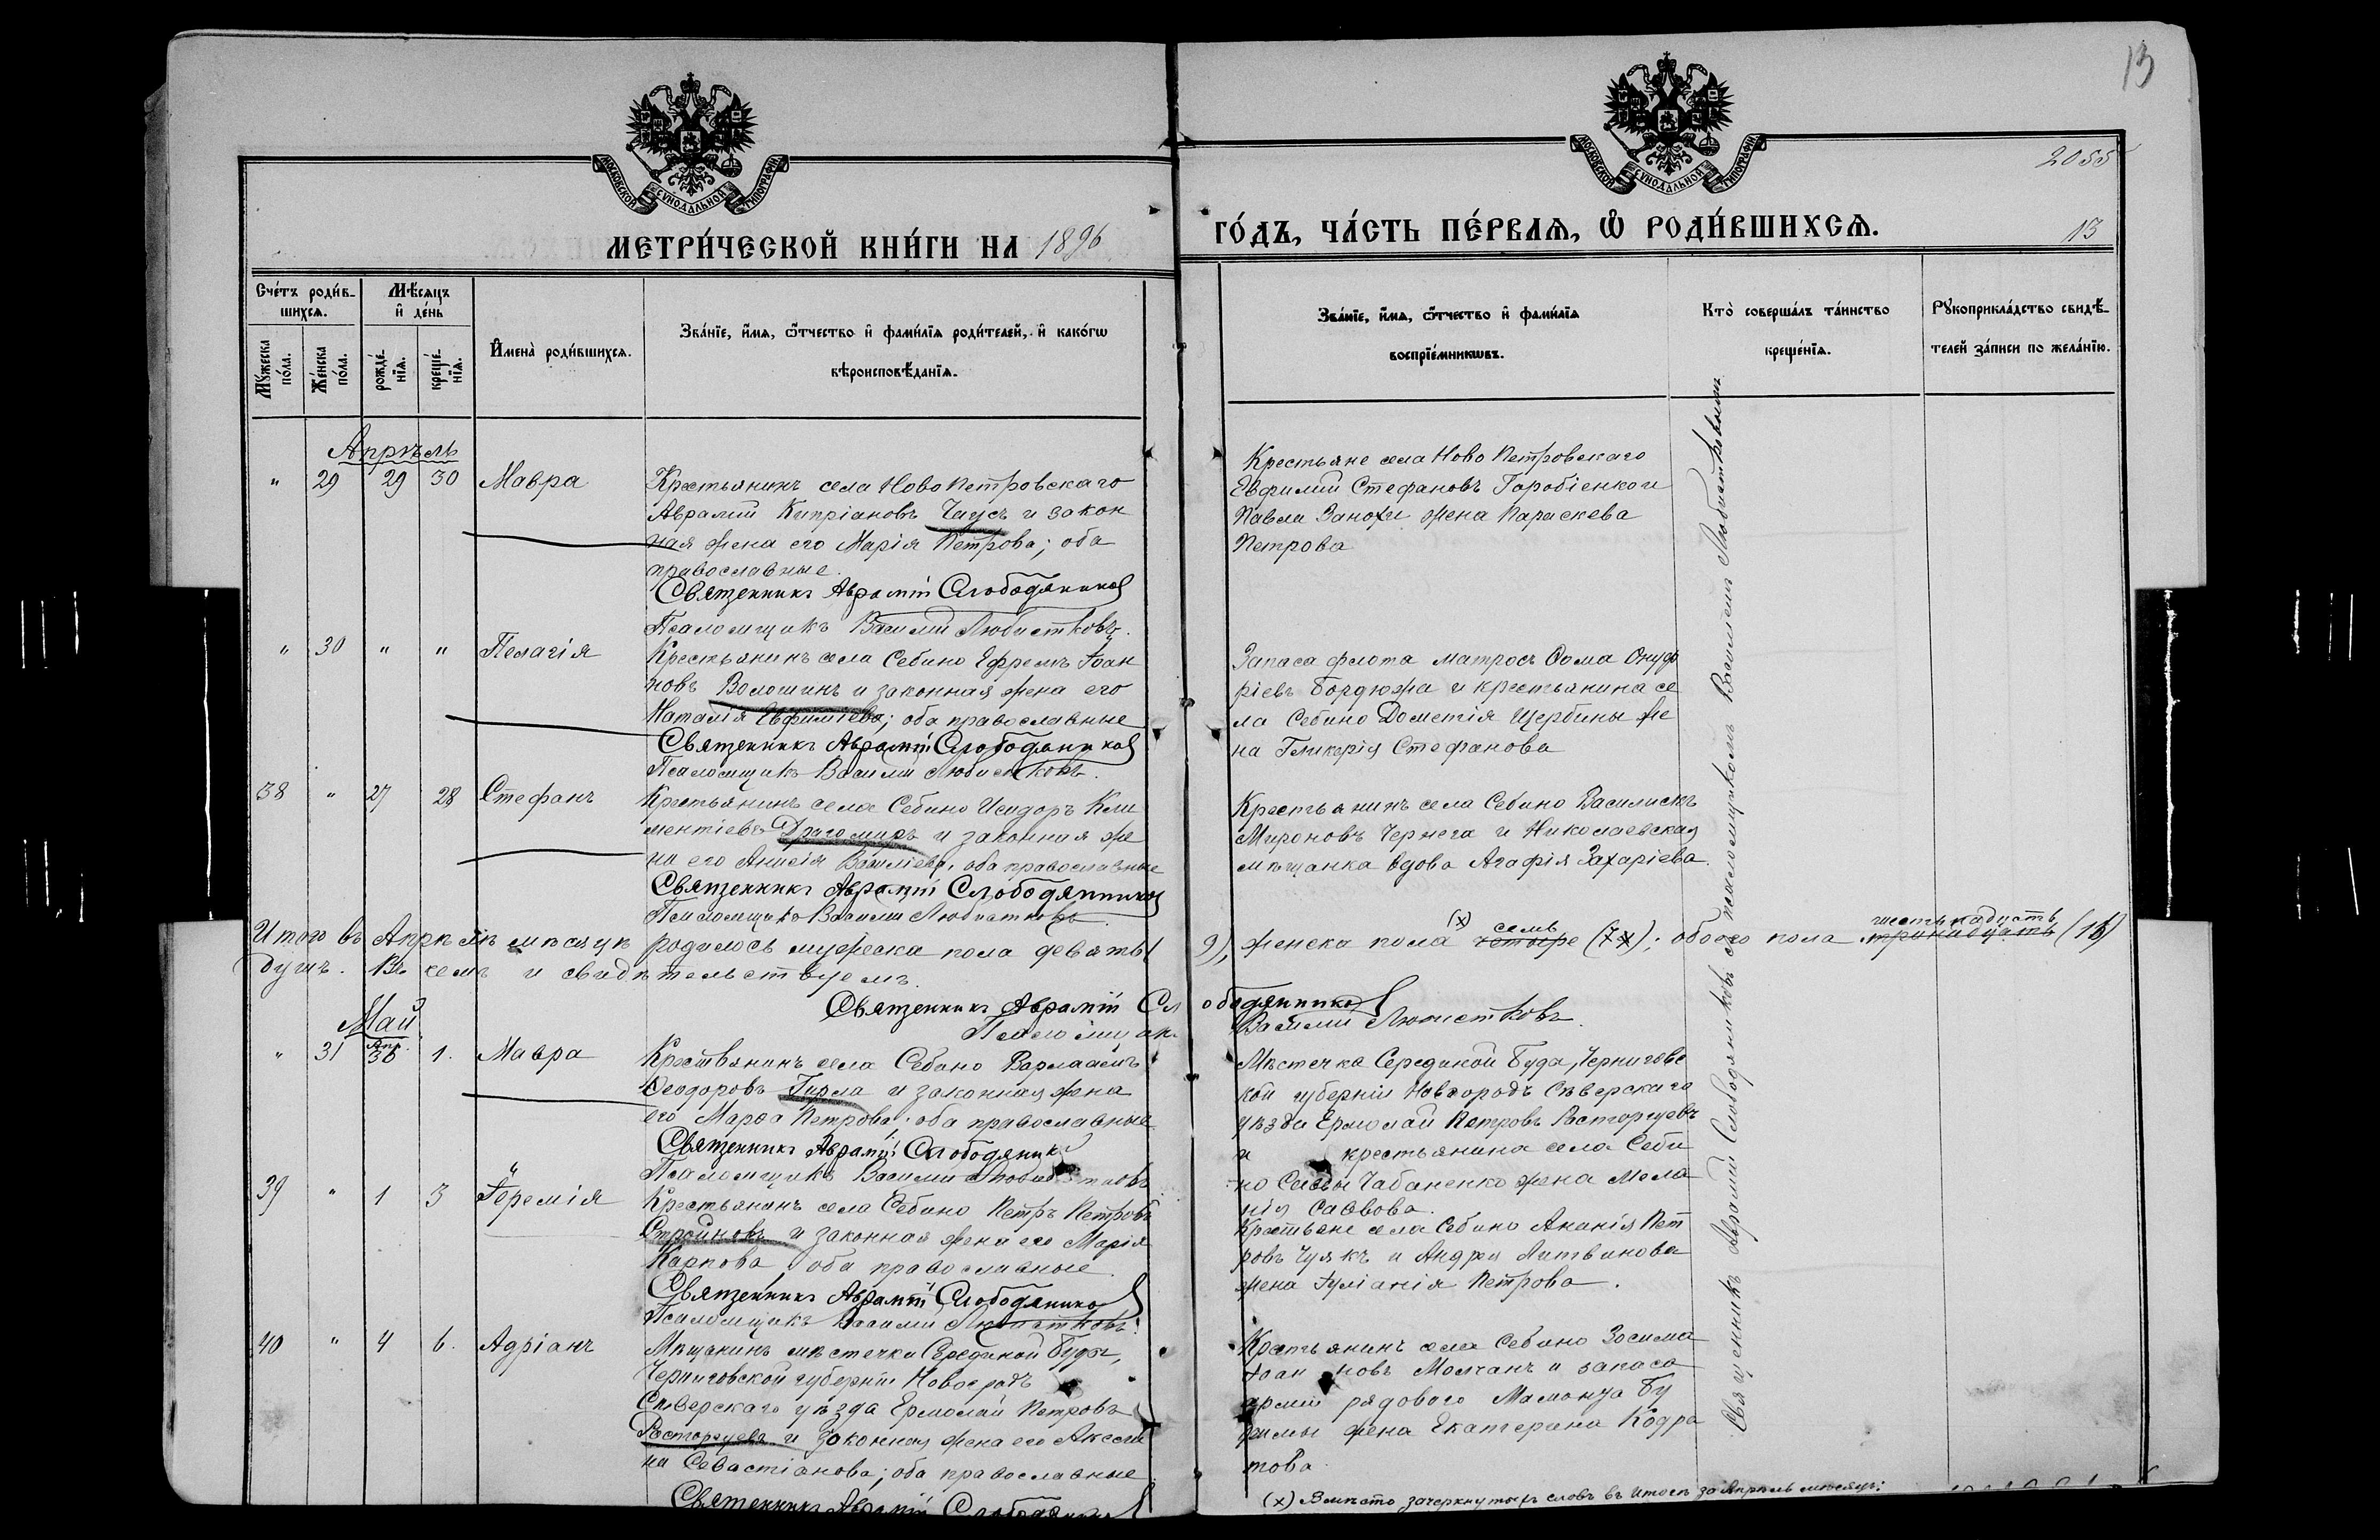 13
2055
МОСКОВСКОЙ СѴНОДАЛЬНОЙ ТИПОГРАФІИ
МОСКОВСКОЙ СѴНОДАЛЬНОЙ ТИПОГРАФІИ
МЕТРИ́ЧЕСКОЙ КНИ́ГИ НА 1896
ГО́ДЪ, ЧА́СТЬ ПЕ́РВАѦ, Ѽ РОДИ́ВШИХСѦ.
13
Сче́тъ роди́в-
шихсѧ.
Мꙋ́жеска по́ла.
Же́нска по́ла.
Мѣ́сѧцъ
и҆ де́нь
рожде́-
нїѧ.
креще́-
нїѧ.
И҆мена̀ роди́вшихсѧ.
Зва́нїе, и҆́мѧ, ѻ҆́тчество и҆ фами́лїѧ роди́телей, и҆ како́гѡ
вѣроисповѣ́данїѧ.
Зва́нїе, и҆́мѧ, ѻ҆́тчество и҆ фами́лїѧ
воспрїе́мникѡвъ.
Кто̀ соверша́лъ та́инство
креще́нїѧ.
Рꙋкоприкла́дство свидѣ́-
телей за́писи по жела́нїю.
Апрѣль
" 29 29 30 Мавра
Крестьянинъ села Ново Петровскаго
Аврамій Кипріановъ Чаусъ и закон
ная жена его Марія Петрова; оба
православные.
Священникъ Аврамій Слободяников
Псаломщикъ Василій Любистковъ.
Крестьяне села Ново Петровскаго
Евфимій Стефановъ Горобіенко и
Павла жена Параскева
Петрова
" 30 " " Пелагія
Крестьянинъ села Себино Ефремъ Іоан
новъ Волошинъ и законная жена его
Наталія Евфиміева; оба православные
Священникъ Аврамій Слободяников
Псаломщикъ Василій Любистковъ.
Запаса флота матросъ Ѳома Онуф
ріевъ Бордюжа и крестьянина се
ла Себино Дометія Щербины же
на Гликерія Стефанова
38 " 27 28 Стефанъ
Крестьянинъ села Себино Исидоръ Кли
ментіевъ Драгомиръ и законная же
на его Анисія Васильева, оба православные
Священникъ Аврамій Слободяников
Псаломщикъ Василій Любистковъ.
Крестьянинъ села Себино Василискъ
Мироновъ Чернега и Николаевская
мѣщанка вдова Агафія Захаріева.
Итого въ Апрѣлѣ мѣсяцѣ родилось мужеска пола девять (9), женска пола (х) четыре семь (7); обоего пола тринадцать шестнадцать (16)
душъ. Въ чемъ и свидѣтельствуемъ.
Священникъ Аврамій Слободяников
Псаломщикъ Василій Любистковъ.
Май
" 31 Апр. 30 1. Мавра
Крестьянинъ села Себино Варлаамъ
Ѳеодоровъ Гирла и законная жена
его Марѳа Петрова; оба православные
Священникъ Аврамій Слободяников
Псаломщикъ Василій Любистковъ
Мѣстечка Середикой Буда, Чернигове
кой губерніи Новгородъ Сѣверскаго
уѣзда Ермолай Петровъ Расторгуевъ
и крестьянина села Себи
но Саввы Чабаненко жена Мела
нія Саввова.
39 " 1 3 Іеремія
Крестьянинъ села Себино Петръ Петровъ
и законная жена его Марія
Карпова, оба православные
Священникъ Аврамій Слободяников
Псаломщикъ Василій Любистковъ.
Крестьяне села Себино Ананія Пет
ровъ и Андрея Литвинова
жена Іуліанія Петрова.
40 " 4 6. Адріанъ
Мѣщанинъ мѣстечка Середикой Буды,
Черниговской губерніи Новогродъ
Сѣверскаго уѣзда Ермолай Петровъ
Расторгуевъ и законная жена его Аксені
на Севастіанова; оба православные
Священникъ Аврамій Слободяников
Крестьянинъ села Себино Зосима
Іоанновъ Молчанъ и запаса
арміи рядового жена Екатерина Кодра
това.
Священникъ Аврамій Слободяниковъ съ псаломщикомъ Василіемъ Любистковымъ
(х) Вмѣсто зачеркнутыхъ словъ въ итогѣ за Апрѣль мѣсяцъ: